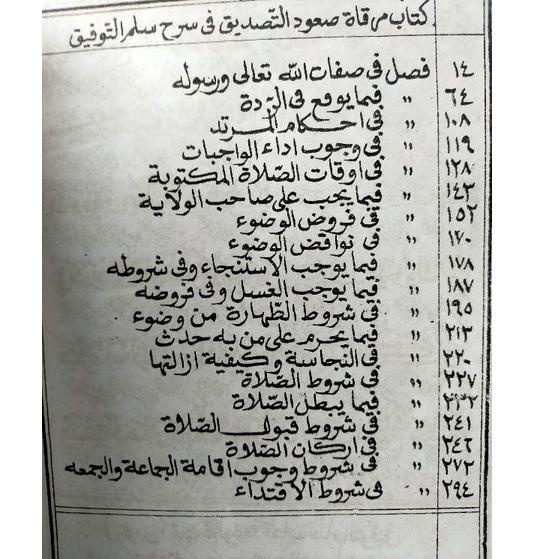 كتاب مرقاة صعود التصديق فى سرح سلم التوفيق
١٤ فصل فى صفات الله تعالى ورسوله
٦٤ " فيما يوقع فى الردة
١٠٨ " فى احكام المرتد
١١٩ " فى وجوب اداء الواجبات
١٢٨ " فى اوقات الصلاة المكتوبة
١٤٣ " فيما يجب على صاحب الولاية
١٥٢ " فى فروض الوضوء
١٧٠ " فى نواقض الوضوء
١٧٨ " فيما يوجب الاستنجاء وفى شروطه
١٨٧ " فيما يوجب الغسل وفى فروضه
١٩٥ " فى شروط الطهارة من وضوء
٢١٣ " فيما يحرم على من به حدث
٢٢٠ " فى النجاسة وكيفية ازالتها
٢٢٧ " فى شروط الصلاة
٢٣٢ " فيما يبطل الصلاة
٢٤١ " فى شروط قبول الصلاة
٢٤٦ " فى اركان الصلاة
٢٧٢ " فى شروط وجوب اقامة الجماعة والجمعه
٢٩٤ " فى شروط الاقتداء